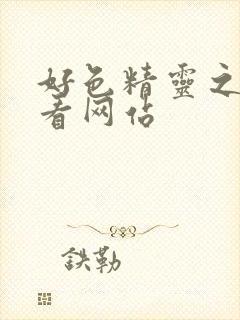 好色精靈之
看网站
鉄勒